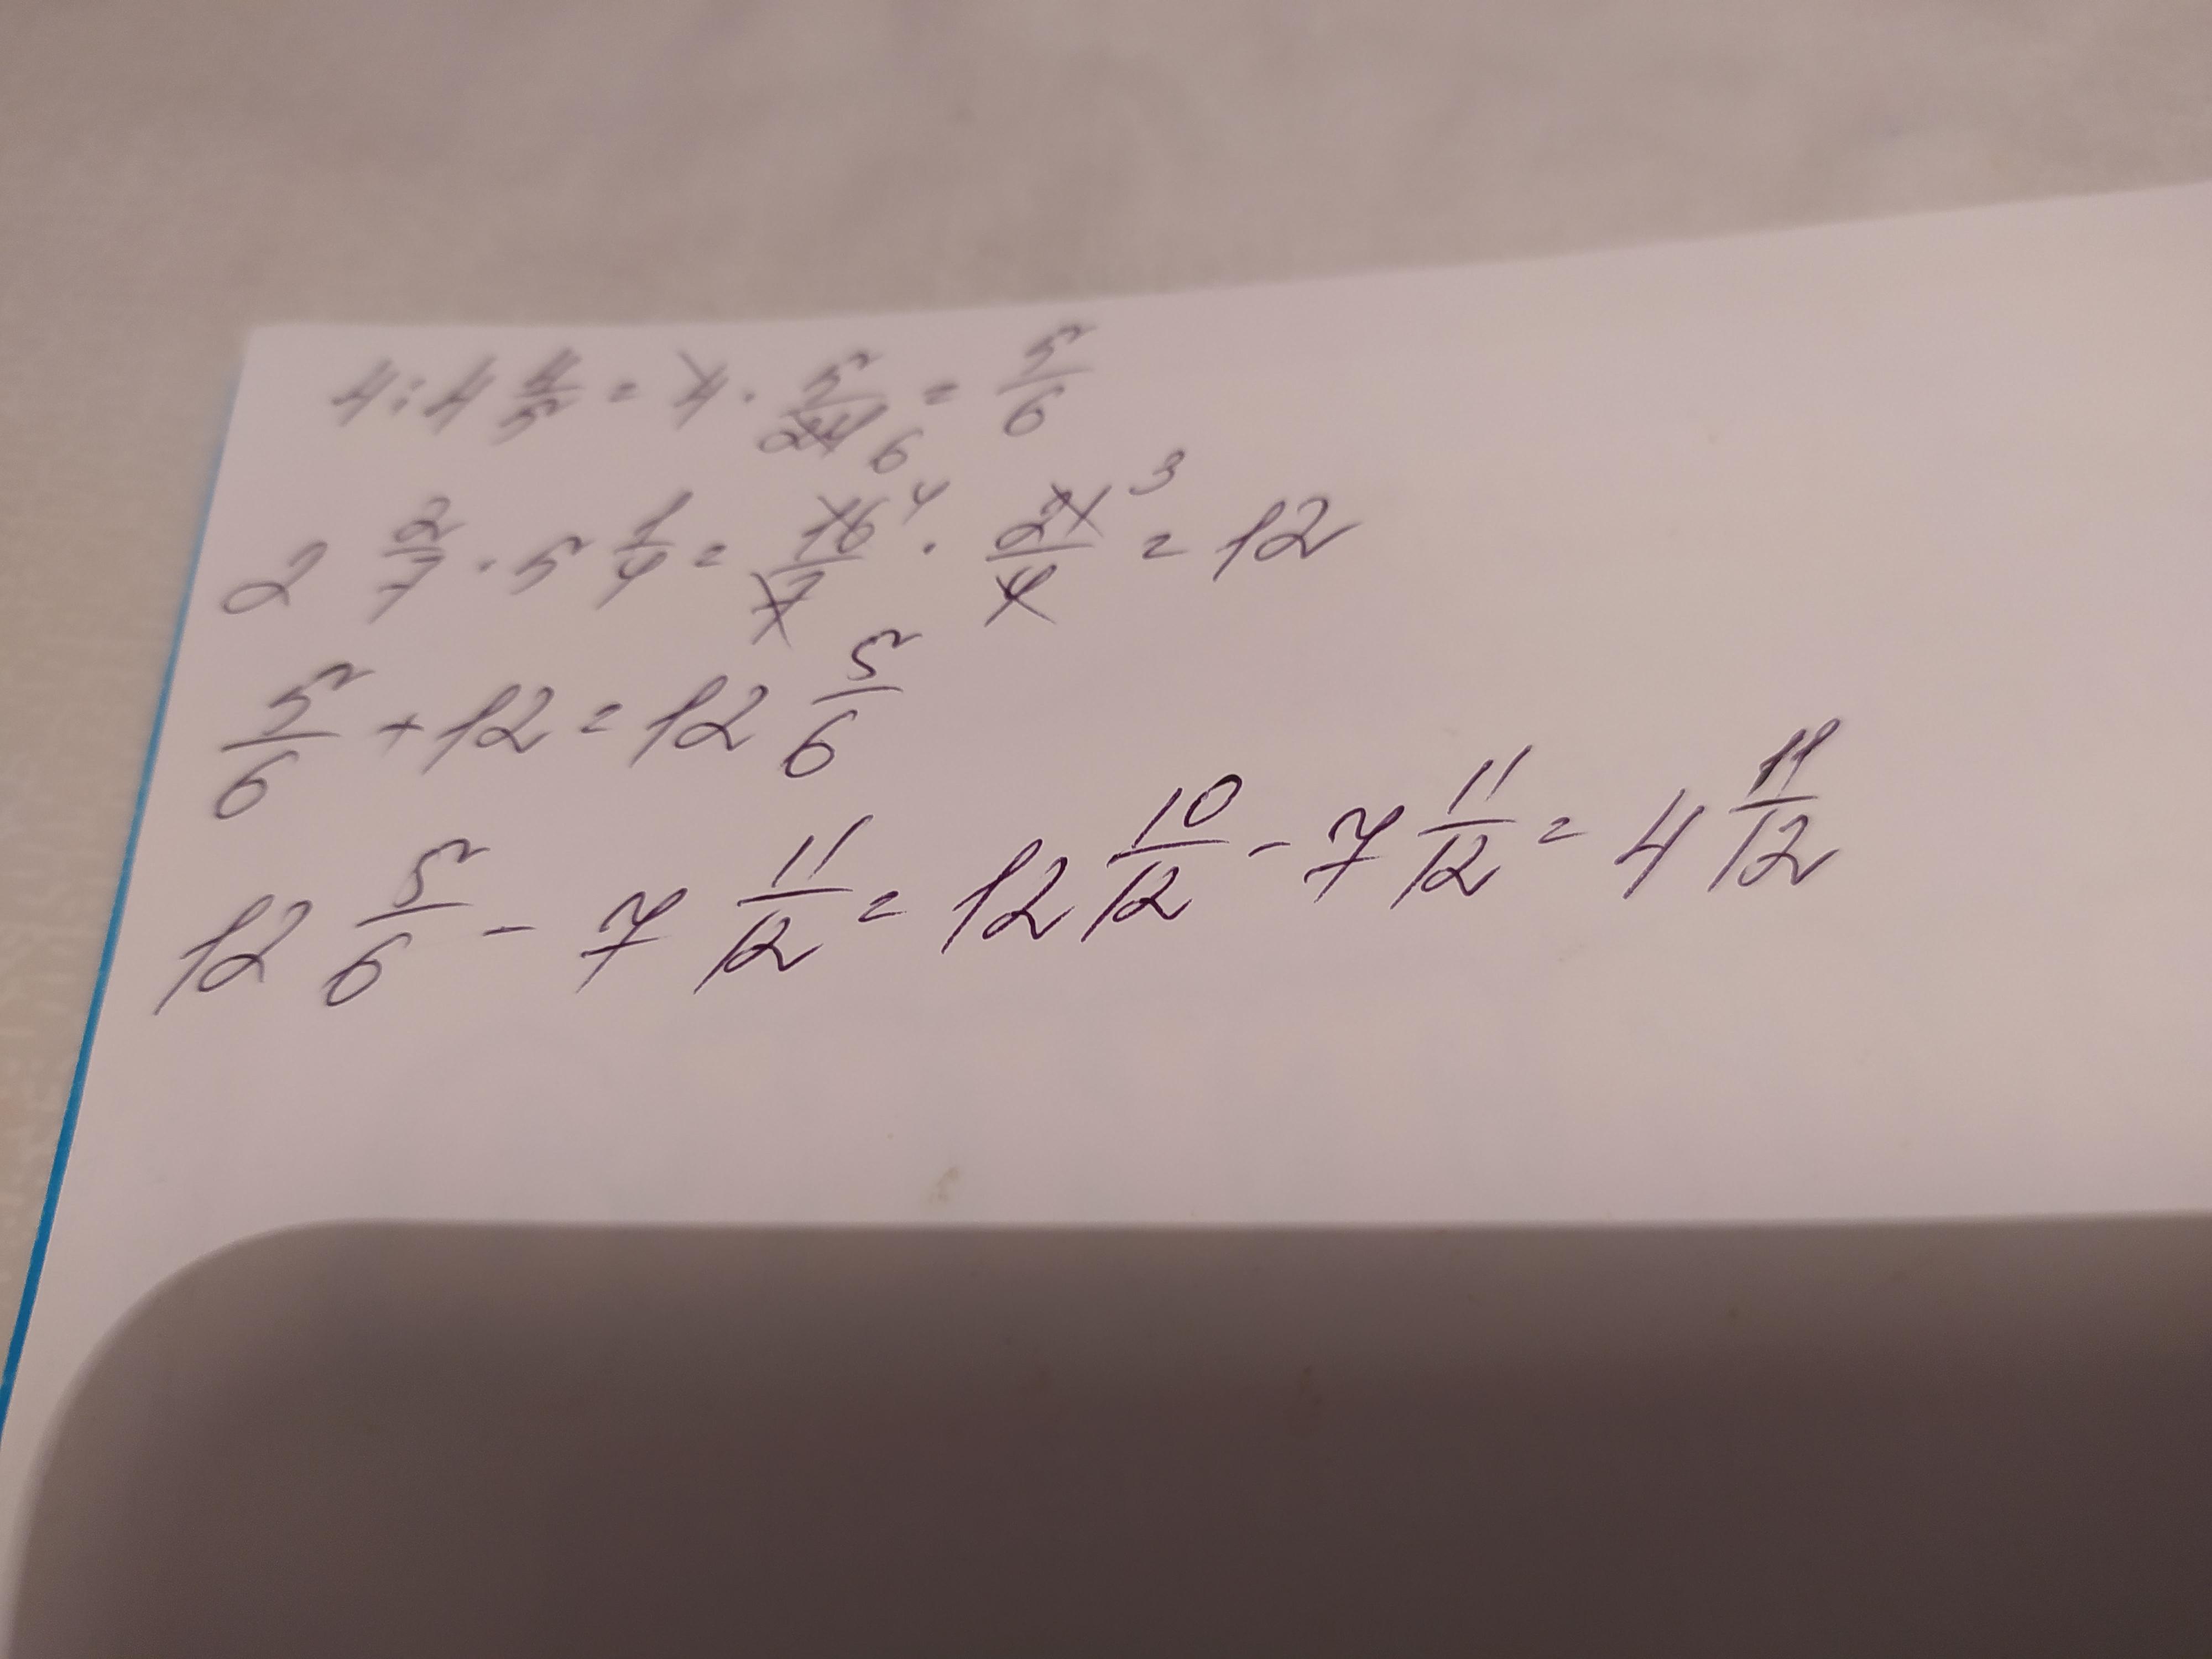 4 : 4 4/5 = 4 · 5/24 6 = 5/6
2 2/7 · 5 1/4 = 16/7 4 · 21/4 3 = 12
5/6 + 12 = 12 5/6
12 5/6 - 7 11/12 = 12 10/12 - 7 11/12 = 4 11/12